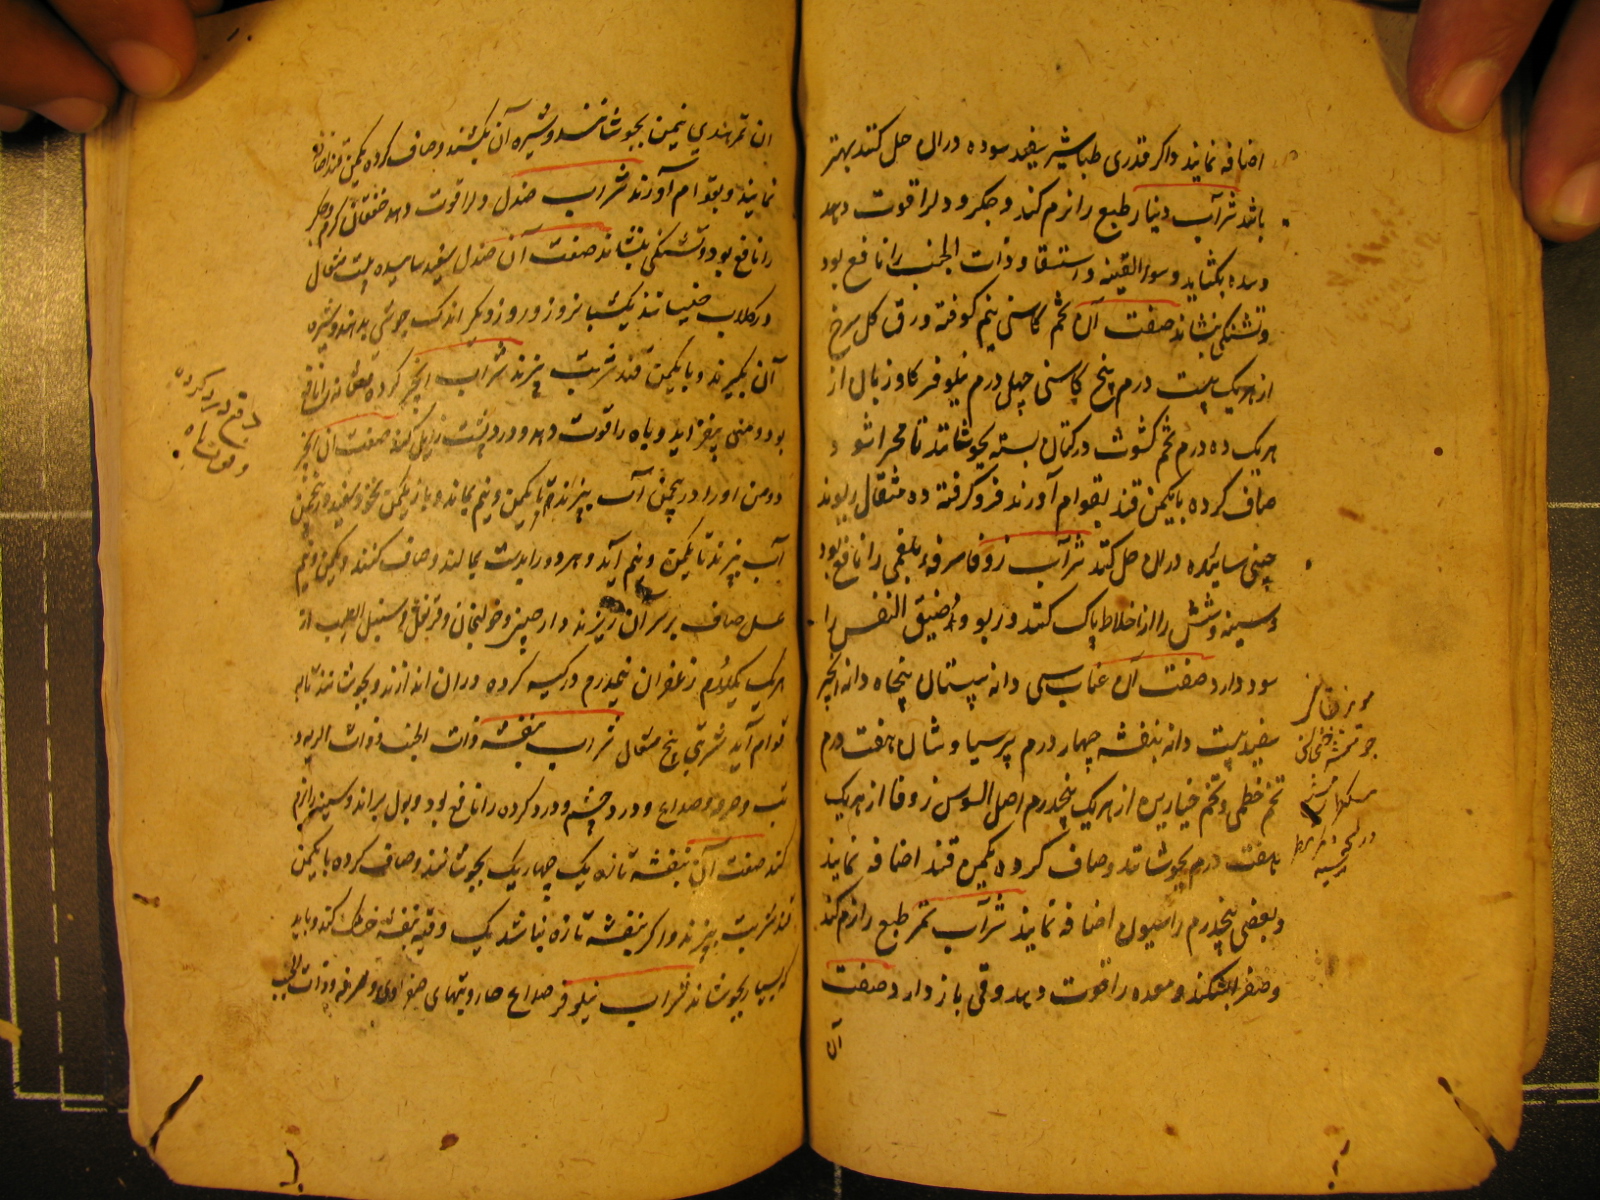 اضافه نمایند و اگر قدری طباشیر سفید سوده در ان حل کنند بهتر
باشد شراب دینار طبع را نرم کند و جگر و دل را قوت دهد
و سده بکشاید و سوء القنیه و استسقا و ذات الجنب را نافع بود
و تشنکی بنشاند صفت آن تخم کاسنی نیم کوفته ورق کل سرخ
از هریک بیست درم بیخ کاسنی چهل درم نیلوفر کاوزبان از
هریک ده درم تخم کشوث در کتان بسته بجوشانند تا مهرا شود
صاف کرده با یکمن قند بقوام آورند فرو کرفته ده مثقال ریوند
چینی سائیده در ان حل کنند شراب زوفا سرفه بلغمی را نافع بود
و سینه و شش را از اخلاط پاک کند و ربو و ضیق النفس را
سود دارد صفت آن عناب سی دانه سپستان پنجاه دانه انجیر
سفید بیست دانه بنفشه چهار درم پرسیاوشان هفت درم
تخم خطمی و تخم خیارین از هریک پنجدرم اصل السوس زوفا از هریک
هفت درم بجوشانند و صاف کرده یکمن قند اضافه نمایند
و بعضی پنجدرم راسیون اضافه نمایند شراب تمر طبع را نرم کند
و صفرا بشکند و معده را قوت دهد و قی باز دارد صفت
آن
ان تمر هندی نیمن بجوشانند و شیره آن بکشند و صاف کرده یکمن قند اضافه
نمایند و بقوام آورند شراب صندل دل را قوت دهد خفقان کرم و جکر
را نافع بود و تشنکی بنشاند صفت آن صندل سفید ساییده بیست مثقال
در کلاب خیسانند یکشبانروز و روز دیکر اندک جوشی بدهند و شیره
آن بکیرند و با یکمن قند شربت پزند شراب انجیر کرده و مثانه را نافع
بود و منی بیفزاید و باه را قوت دهد و درد پشت زایل کند صفت ان انجیر
دو من او را در پنجمن آب پزند تا یکمن و نیم بماند و باز یکمن نخود سفید در پنجمن
آب پزند تا یکمن و نیم آید و هر دو را بدست بمالند و صاف کنند و یکمن و نیم
عسل صاف بر سر آن ریزند دارچینی و خولنجان و قرنفل و سنبل الطیب از
هریک یکدرم زعفران نیمدرم در کیسه کرده در ان اندازند و بجوشانند تا به
قوام آید شربتی پنج مثقال شراب بنفشه ذات الجنب و ذات الریه و
تب و سرفه و صداع و درد چشم و درد کرده را نافع بود و بول براند و سینه را نرم
کند صفت آن بنفشه تازه یک چهاریک بجوشانند و صاف کرده با یکمن
قند شربت پزند و اکر بنفشه تازه نباشد یک وقیه بنفشه خشک کنند و باید
که بسیار بجوشاند شراب نیلوفر صداع حار و تبهای صفراوی و سرفه و ذات الجنب